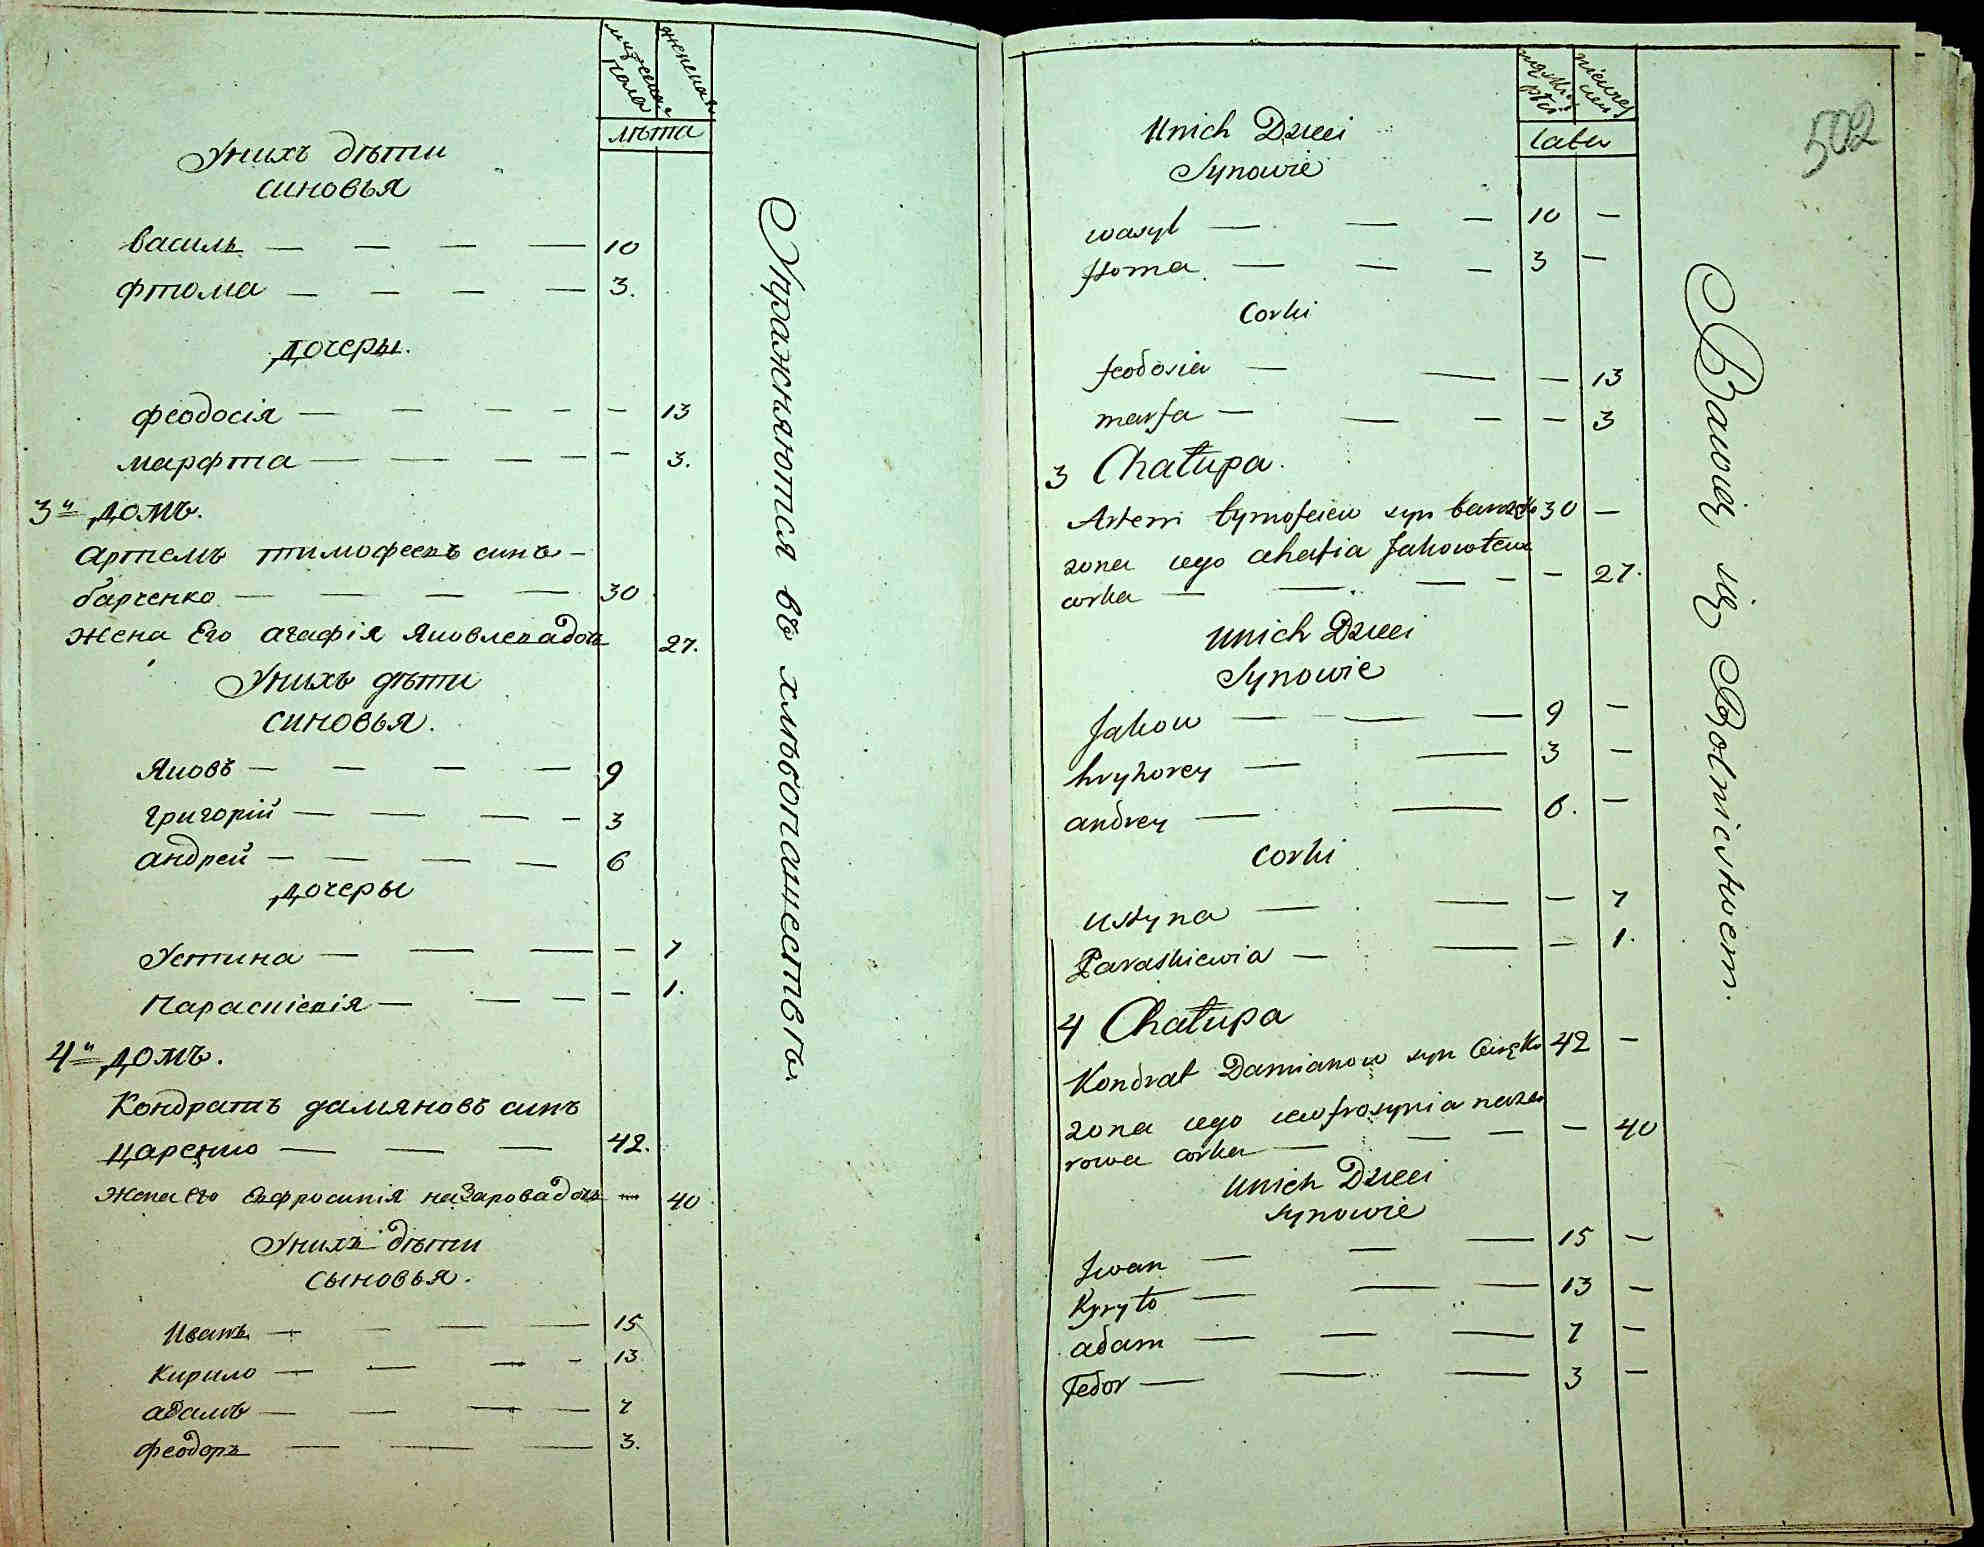 мужеска пола
женска
лѣта
Унихъ дѣти
синовья
василь — — — — 10
фтома — — — — 3.
дочеры.
феодосія — — — — — 13
марфта — — — — — 3.
3й домъ.
артемъ тимофеевъ синъ —
барченко — — — — 30
жена Его агафія Яковлевадочь 27.
Унихъ дѣти
синовья.
Яковъ — — — — 9
григорій — — — — 3
андрей — — — — 6
дочеры
Устина — — — — 7
Параскіевія — — — — 1.
4й домъ.
Кондратъ дамяновъ синъ
Царенко — — — 42.
жена Его Евфросинія назаровадочь — 40
Унихъ дѣти
сыновья.
Иванъ — — — — 15
Кирило — — — — 13
адамъ — — — — 7
феодоръ — — — 3.
Упражняются въ хлѣбопашествѣ.
502
latu
Unich Dzieci
Synowie
wasyl — — — 10 —
ftoma — — — 3 —
Corki
feodosia — — — 13
marfa — — — — 3
3 Chałupa.
Artem tymofeiew syn 30 —
zona iego ahafia Jakowłewa
corka — — — — — 27.
Unich Dzieci
Synowie
Jakow — — — 9 —
hryhorey — — 3 —
andrey — — 6. —
Corki
Ustyna — — — 7
Paraskiewia — — — 1.
4 Chałupa
Kondrat Damianow syn 42 —
zona iego iewfrosynia naza
rowa corka — — — — 40
Unich Dzieci
synowie
Jwan — — — 15 —
Kyryło — — — 13 —
adam — — — 7 —
fedor — — — 3 —
Bawią się Rolnictwem.